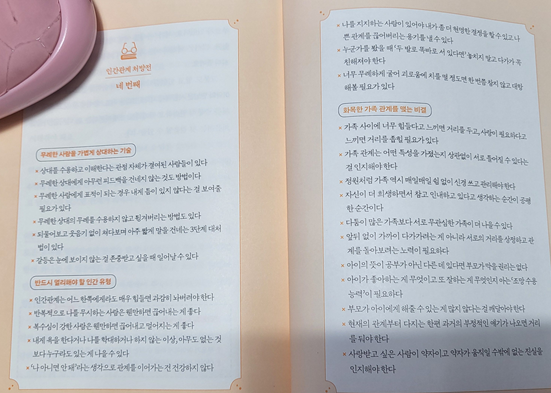 인간관계 처방전
네 번째
무례한 사람을 가볍게 상대하는 기술
× 상대를 수용하고 이해한다는 관점 자체가 결여된 사람들이 있다
× 무례한 상대에게 아무런 피드백을 안 하지 않는 것도 방법이다
× 무례한 사람에게 표적이 되는 경우 내게 틈이 있지 않다는 걸 보여줄
필요가 있다
× 무례한 상대의 무례를 수용하지 않고 튕겨버리는 방법도 있다
× 되물어보고 웃음기 없이 쳐다보며 아주 짧게 말을 건네는 3단계 대처
법이 있다
× 갈등은 눈에 보이지 않는 걸 존중받고 싶을 때 일어날 수 있다
반드시 멀리해야 할 인간 유형
× 인간관계는 어느 한쪽에게라도 매우 힘들면 과감히 놔버려야 한다
× 반복적으로 나를 무시하는 사람은 웬만하면 끊어내는 게 좋다
× 복수심이 강한 사람은 웬만하면 끊어내고 멀어지는 게 좋다
× 내게 욕을 한다거나 나를 학대하거나 하지 않는 이상, 아무도 없는 것
보다 누구라도 있는 게 나을 수 있다
× '나 아니면 안 돼'라는 생각으로 관계를 이어가는 건 건강하지 않다
× 나를 지지하는 사람이 있어야 내가 좀 더 현명한 결정을 할 수 있고 나
쁜 관계를 끊어버리는 용기를 낼 수 있다
× 누군가를 봤을 때 '두 발로 똑바로 서 있다면' 놓치지 말고 다가가 꼭
친해져야 한다
× 너무 무례하게 굴어 괴로움에 치를 떨 정도면 한 번쯤 참지 않고 대항
해볼 필요가 있다
화목한 가족 관계를 맺는 비결
× 가족 사이에 너무 힘들다고 느끼면 거리를 두고, 사랑이 필요하다고
느끼면 거리를 좁힐 필요가 있다
× 가족 관계는 어떤 특성을 가졌는지 상관없이 서로 틀어질 수 있다는
걸 인지해야 한다
× 정원처럼 가족 역시 매일매일 쉼 없이 신경 쓰고 관리해야 한다
× 자신이 더 희생하면서 참고 인내하고 있다고 생각하는 순간이 공평
한 순간이다
× 다툼이 많은 가족보다 서로 무관심한 가족이 더 나쁠 수 있다
× 앞뒤 없이 가까이 다가가려는 게 아니라 서로의 거리를 설정하고 관
계를 돌아보려는 노력이 필요하다
× 아이의 뜻이 공부가 아닌 다른 데 있다면 부모가 막을 권리는 없다
× 아이가 좋아하는 게 무엇이고 또 잘하는 게 무엇인지 아는 '조망 수용
능력'이 필요하다
× 부모가 아이에게 해줄 수 있는 게 많지 않다는 걸 깨달아야 한다
× 현재의 관계부터 다지는 한편 과거의 부정적인 얘기가 나오면 거리
를 둬야 한다
× 사랑받고 싶은 사람이 약자이고 약자가 움직일 수밖에 없는 진실을
인지해야 한다